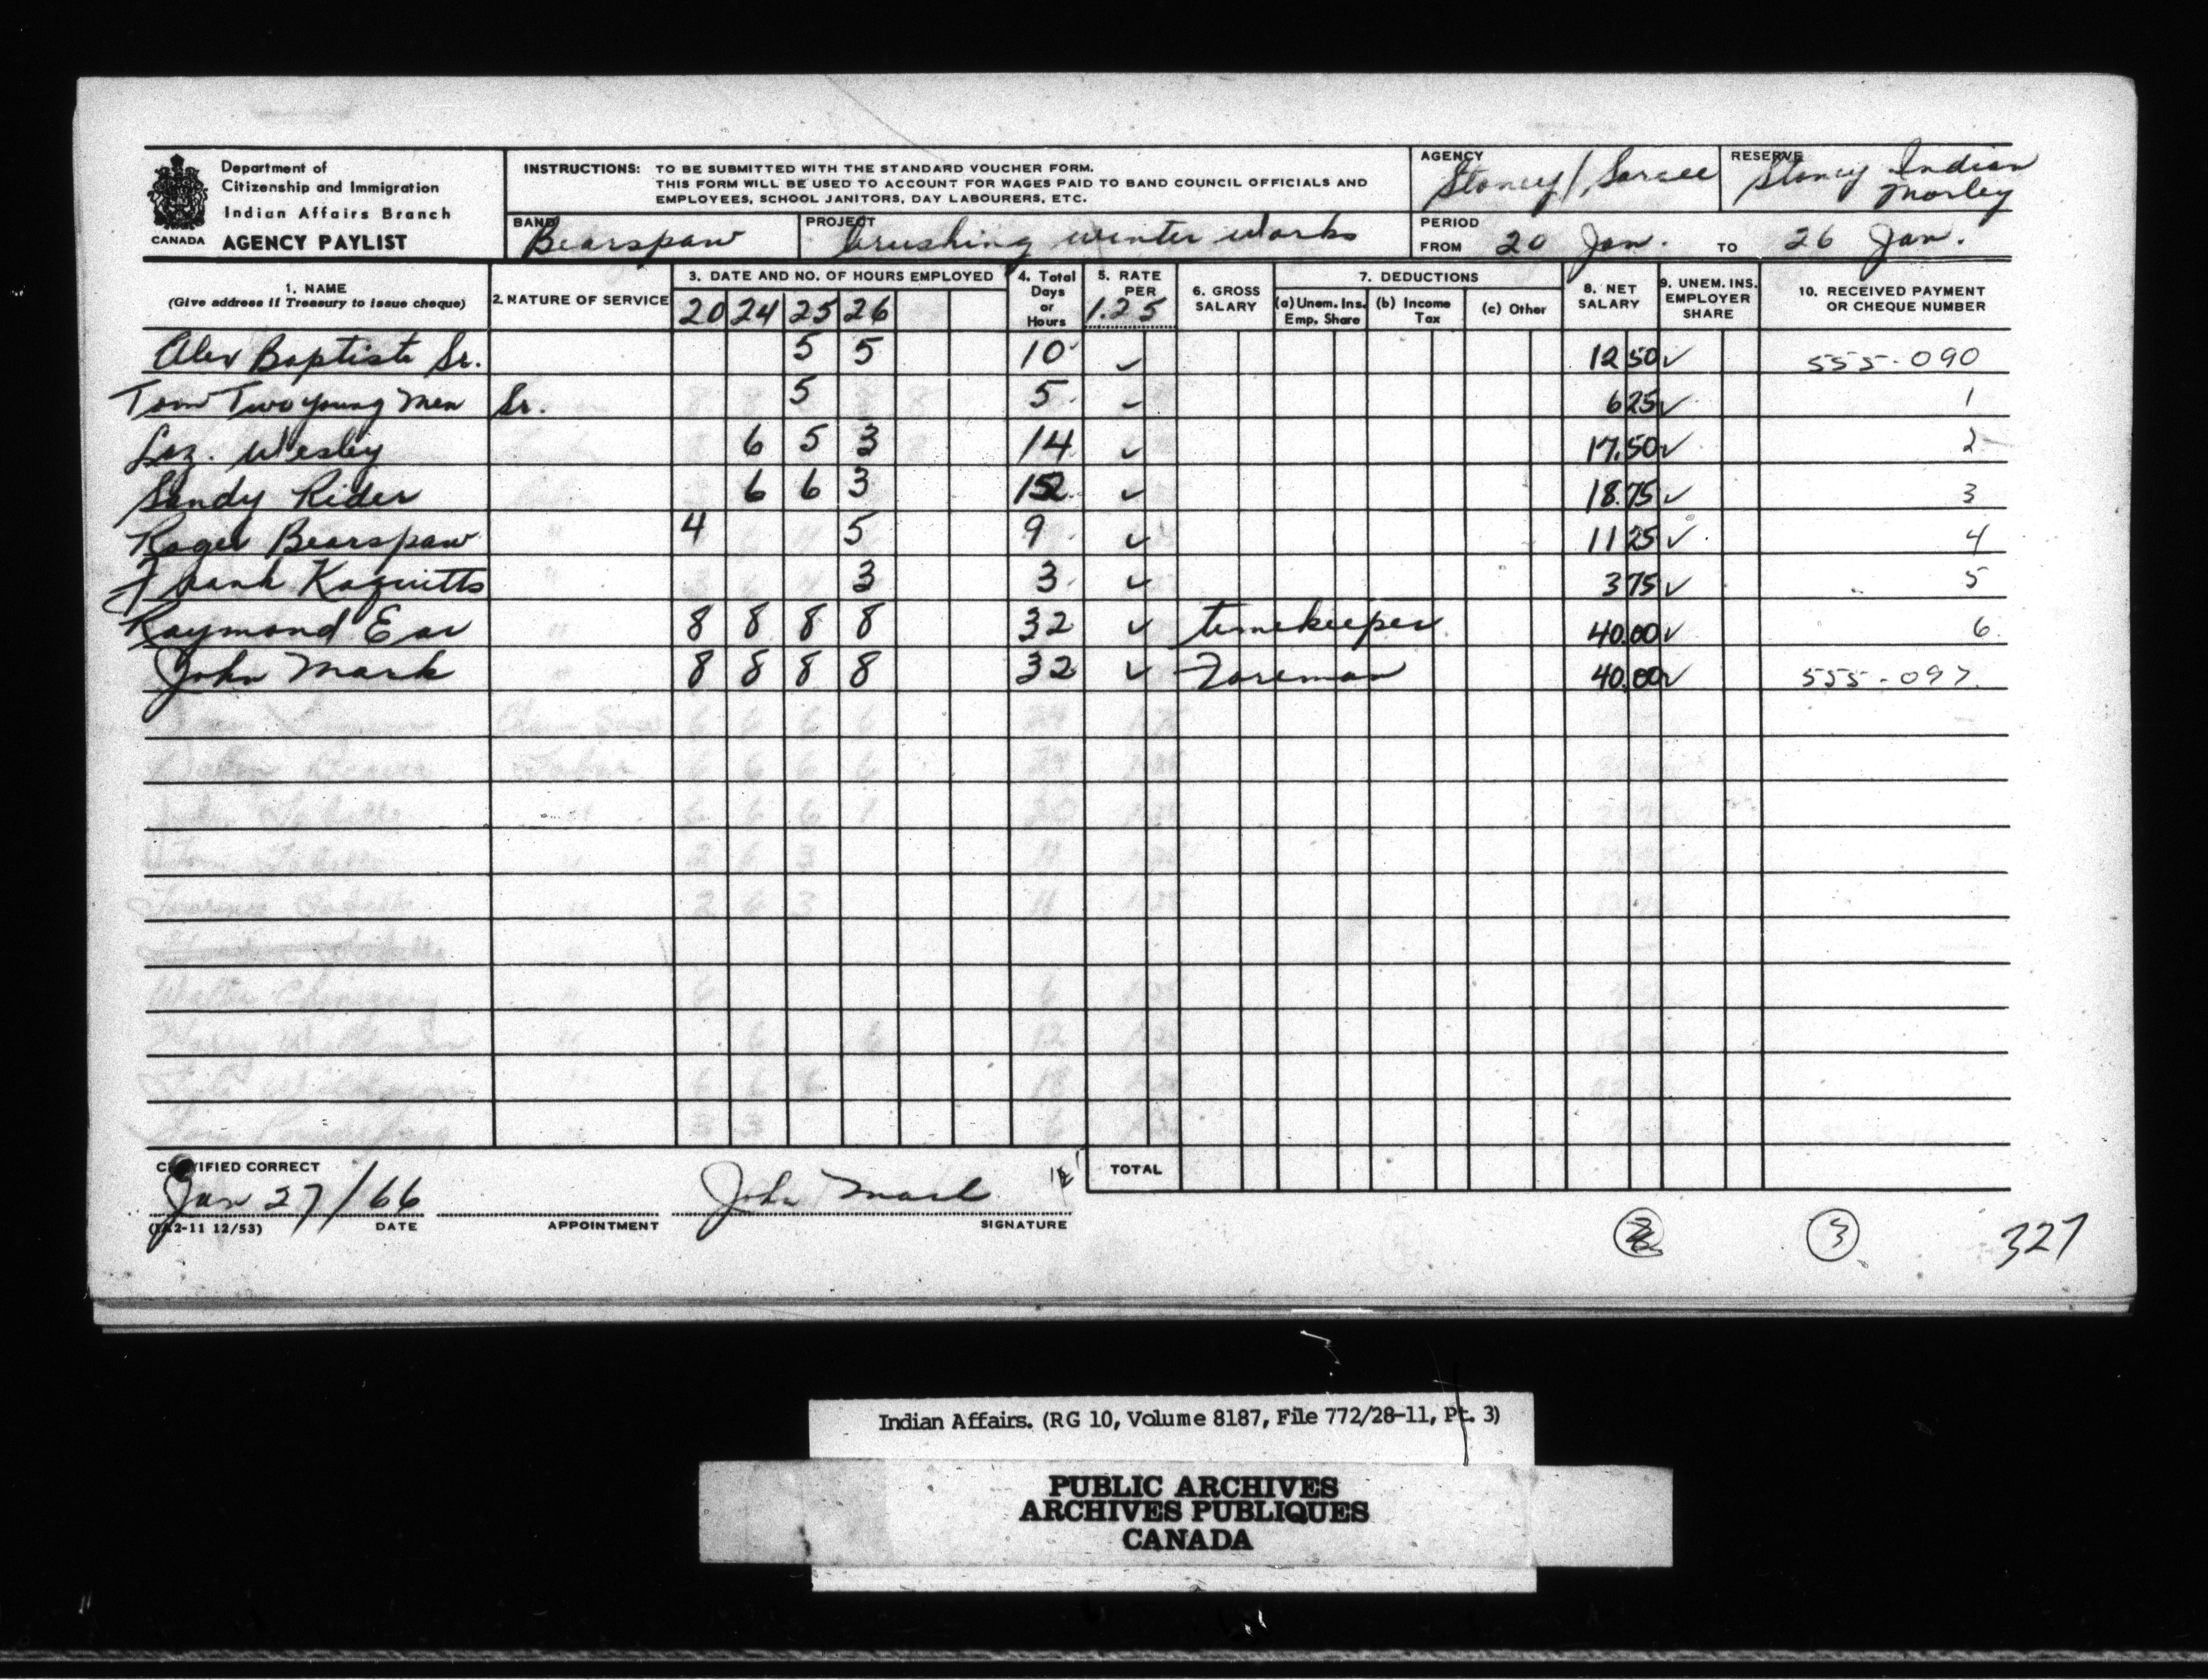 Department of
Citizenship and Immigration
Indian Affairs Branch
CANADA AGENCY PAYLIST
INSTRUCTIONS: TO BE SUBMITTED WITH THE STANDARD VOUCHER FORM.
THIS FORM WILL BE USED TO ACCOUNT FOR WAGES PAID TO BAND COUNCIL OFFICIALS AND
EMPLOYEES, SCHOOL JANITORS, DAY LABOURERS, ETC.
AGENCY Stoney/Sarcee
RESERVE Stoney Indian
Morley
BAND Bearspaw
PROJECT brushing winter works
PERIOD
FROM 20 Jan. TO 26 Jan.
1. NAME
(Give address if Treasury to issue cheque)
2. NATURE OF SERVICE
3. DATE AND NO. OF HOURS EMPLOYED
20 24 25 26
4. Total
Days
or
Hours
5. RATE
PER
1.25
6. GROSS
SALARY
7. DEDUCTIONS
(a) Unem. Ins.
Emp. Share
(b) Income
Tax
(c) Other
8. NET
SALARY
9. UNEM. INS.
EMPLOYER
SHARE
10. RECEIVED PAYMENT
OR CHEQUE NUMBER
Alex Baptiste Sr. 5 5 10 ✓ 12 50 ✓ 555-090
Tom Twoyoung Men Sr. 5 5 ✓ 6 25 ✓ 1
Laz. Wesley 6 5 3 14 ✓ 17.50 ✓ 2
Sandy Rider 6 6 3 15 ✓ 18.75 ✓ 3
Roger Bearspaw 4 5 9 ✓ 11 25 ✓ 4
Frank Kaquitts 3 3 ✓ 3 75 ✓ 5
Raymond Ear 8 8 8 8 32 ✓ timekeeper 40.00 ✓ 6
John Mark 8 8 8 8 32 ✓ Foreman 40.00 ✓ 555-097
TOTAL
CERTIFIED CORRECT
Jan 27/66 John Mark
(IA2-11 12/53) DATE APPOINTMENT SIGNATURE
3 327
Indian Affairs. (RG 10, Volume 8187, File 772/28-11, Pt. 3)
PUBLIC ARCHIVES
ARCHIVES PUBLIQUES
CANADA